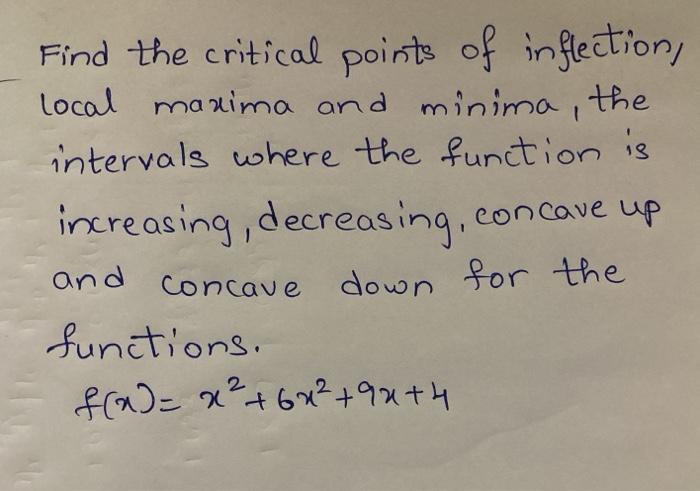 Find the critical points of inflection,
local maxima and minima, the
intervals where the function is
increasing, decreasing, concave up
and concave down for the
functions.
f(x) = x²+6x²+9x+4